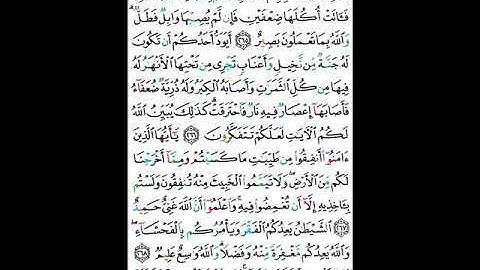 فَـَٔاتَتْ أُكُلَهَا ضِعْفَيْنِ فَإِن لَّمْ يُصِبْهَا وَابِلٌ فَطَلٌّ
وَٱللَّهُ بِمَا تَعْمَلُونَ بَصِيرٌ ٢٦٥ أَيَوَدُّ أَحَدُكُمْ أَن تَكُونَ
لَهُۥ جَنَّةٌ مِّن نَّخِيلٍ وَأَعْنَابٍ تَجْرِى مِن تَحْتِهَا ٱلْأَنْهَٰرُ لَهُۥ
فِيهَا مِن كُلِّ ٱلثَّمَرَٰتِ وَأَصَابَهُ ٱلْكِبَرُ وَلَهُۥ ذُرِّيَّةٌ ضُعَفَآءُ
فَأَصَابَهَآ إِعْصَارٌ فِيهِ نَارٌ فَٱحْتَرَقَتْ ۗ كَذَٰلِكَ يُبَيِّنُ ٱللَّهُ
لَكُمُ ٱلْـَٔايَٰتِ لَعَلَّكُمْ تَتَفَكَّرُونَ ٢٦٦ يَٰٓأَيُّهَا ٱلَّذِينَ
ءَامَنُوٓا۟ أَنفِقُوا۟ مِن طَيِّبَٰتِ مَا كَسَبْتُمْ وَمِمَّآ أَخْرَجْنَا
لَكُم مِّنَ ٱلْأَرْضِ ۖ وَلَا تَيَمَّمُوا۟ ٱلْخَبِيثَ مِنْهُ تُنفِقُونَ وَلَسْتُم
بِـَٔاخِذِيهِ إِلَّآ أَن تُغْمِضُوا۟ فِيهِ ۚ وَٱعْلَمُوٓا۟ أَنَّ ٱللَّهَ غَنِىٌّ حَمِيدٌ
٢٦٧ ٱلشَّيْطَٰنُ يَعِدُكُمُ ٱلْفَقْرَ وَيَأْمُرُكُم بِٱلْفَحْشَآءِ ۖ
وَٱللَّهُ يَعِدُكُم مَّغْفِرَةً مِّنْهُ وَفَضْلًا ۗ وَٱللَّهُ وَٰسِعٌ عَلِيمٌ ٢٦٨